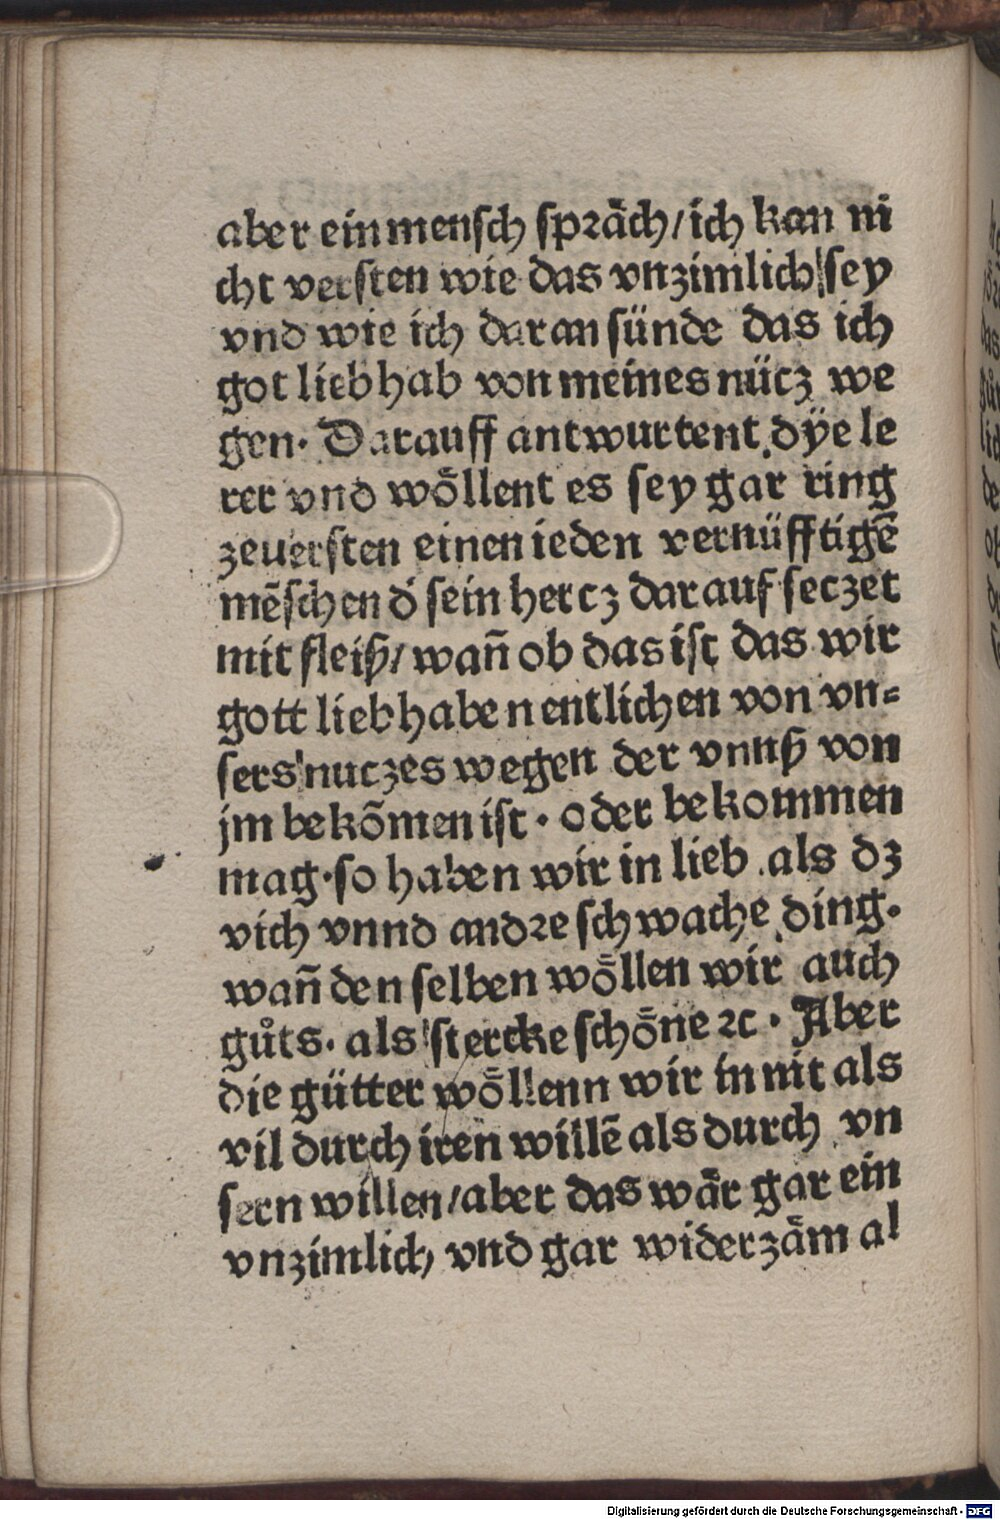 aber ein mensch spräch/ich kan ni
cht versten wie das vnzimlich sey
vnd wie ich daran sünde das ich
got lieb hab von meines nücz we
gen. Darauff antwurtent dÿe le
rer vnd wöllent es sey gar ring
zeuersten einen ieden vernüfftigē
mēschen d' sein hercz darauf seczet
mit fleiß/wañ ob das ist das wir
gott lieb haben entlichen von vn=
sers nuczes wegen der vnnß von
jm bekōmen ist. oder bekommen
mag. so haben wir in lieb als dz
vich vnnd andre schwache ding.
wañ den selben wöllen wir auch
gůts. als stercke schöne ⁊c. Aber
die gütter wöllenn wir in nit als
vil durch iren willē als durch vn
sern willen/aber das wär gar ein
vnzimlich vnd gar widerzäm al
Digitalisierung gefördert durch die Deutsche Forschungsgemeinschaft - DFG